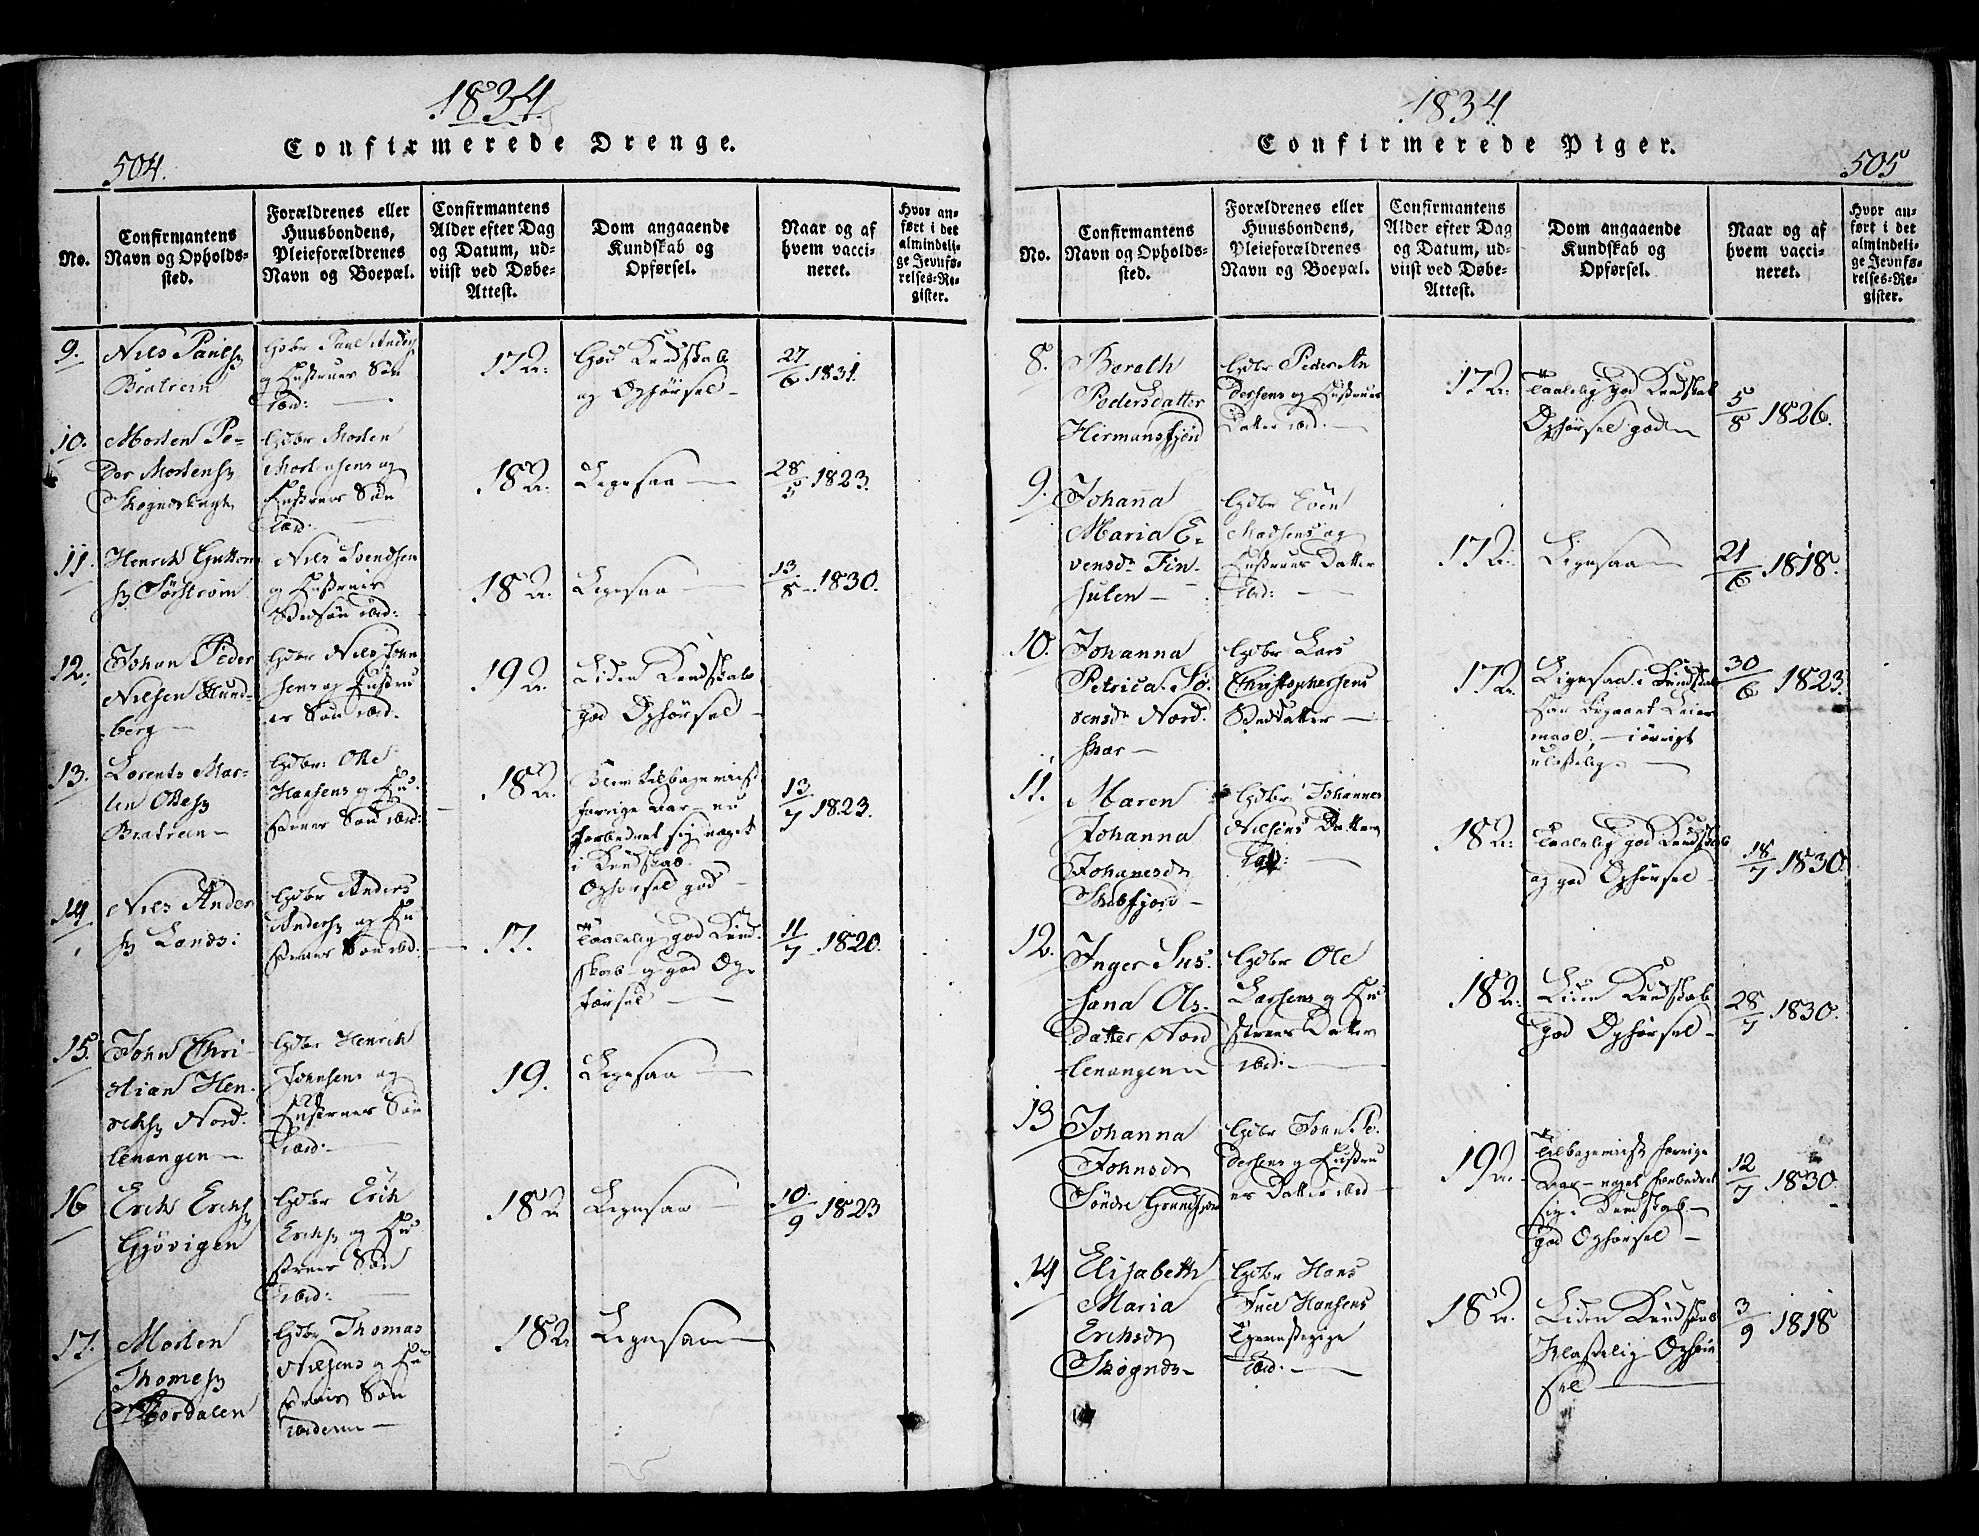 1834
Confirmerede Drenge.
504.
No.
Confirmantens
Navn og Opholds-
sted.
Forældrenes eller
Huusbondens,
Pleieforældrenes
Navn og Boepæl.
Confirmantens
Alder efter Dag
og Datum, ud-
viist ved Døbe-
Attest.
Dom angaaende
Kundskab og
Opførsel.
Naar og af
hvem vacci-
neret.
Hvor an-
ført i det
almindeli-
ge Jevnfø-
relses-Re-
gister.
9.
Nils Paulsen
Bratrein
Gdbr Paul
og Hustrues Søn
ibid:
17 Aar
God Kundskab
og Opførsel
27/6 1831.
10.
Morten Pe-
der Mortensen
Gdbr Morten
Mortensens og
Hustrues Søn
ibid:
18 Aar
Ligesaa
28/5 1823.
11.
Henrik Guttorm
Sørstrøm
Nils Svendsen
og Hustrues
ibid:
18 Aar
Ligesaa
13/8 1830.
12.
Johan Peder
Nilsen Hund-
berg
Gdbr Nils John
sens og Hustru
es Søn ibid.
19 Aar
Liden Kundskab
god Opførsel
13.
Lorents Mar-
tin Olesen
Bratrein
Gdbr: Ole
Hansens og Hu-
strues Søn ibid:
18 Aar
Blev tilbageviist
forrige Aar - nu
forbedret sig noget
i Kundskab.
Opførsel god
13/7 1823.
14
Nils Anders
sen
Gdbr Anders
Andersens og Hu-
strues Søn ibid:
17.
Taalelig god Kund-
skab og god Op-
førsel
11/7 1820.
15.
John Chri-
stian Hen-
riksen Nord-
lenangen
Gdbr Henrik
Johnsens og
Hustrues Søn
ibid:
19.
Ligesaa
16
Erik Eriksen
Gjøvigen
Gdbr Erik
Eriksens og Hu-
strues Søn
ibid:
18 Aar
Ligesaa
10/9 1823
17.
Morten
Thomesen
Gdbr Thomas
Nilsens og Hu-
strues Søn
ibidem
18 Aar
Ligesaa
1834
Confirmerede Piger.
505
No.
Confirmantens
Navn og Opholds-
sted.
Forældrenes eller
Huusbondens,
Pleieforældrenes
Navn og Boepæl.
Confirmantens
Alder efter Dag
og Datum, ud-
viist ved Døbe-
Attest.
Dom angaaende
Kundskab og
Opførsel.
Naar og af
hvem vacci-
neret.
Hvor an-
ført i det
almindeli-
ge Jevnfø-
relses-Re-
gister.
8.
Bereth
Pedersdatter
Gdbr Peder An
dersens og Hustrues
Datter ibid:
17 Aar
Taalelig god Kundskab
Opførsel god
5/8 1826.
9.
Johanna
Maria E-
vensdr Fin-
Gdbr Even
Madsens og
Hustrues Datter
ibid:
17 Aar
Ligesaa
21/6 1818.
10.
Johanna
Petrica Sø-
rensdr Nord-
Gdbr Lars
Christophersens
Steddatter
17 Aar
Ligesaa i Kundskab
har begaaet Leier
maal, i øvrigt
ulastelig
30/6 1823.
11.
Maren
Johanna
Johanesdr
Gdbr: Johannes
Nilsens Datter
ibid:
18 Aar
Taalelig god Kundskab
og god Opførsel
18/7 1830.
12.
Inger Sus-
sana Ols-
datter Nord
lenangen
Gdbr Ole
Larsens og Hu
strues Datter
ibid:
18 Aar
Liden Kundskab
god Opførsel
28/7 1830.
13
Johanna
Johnsdr
Søndre
Gdbr John Pe-
dersens og Hustru
es Datter ibid
19 Aar
Tilbageviist forrige
Aar - noget forbedret
sig i Kundskab
god Opførsel
12/7 1830.
14
Elisabeth
Maria
Eriksdr
Gdbr Hans
Hansens
Tjenestepige
ibid:
18 Aar
Liden Kundskab
Ulastelig Opfør
sel
3/9 1818